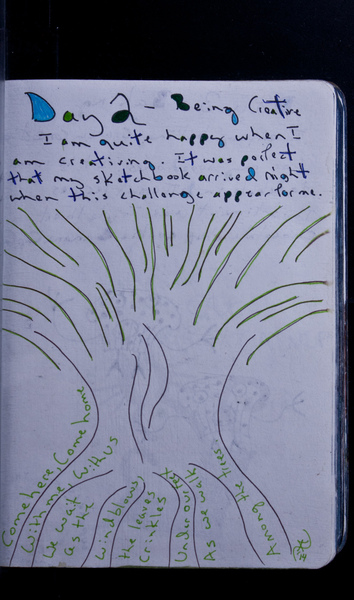 Day 2 - Being Creative
I am quite happy when I
am creativing. It was perfect
that my sketchbook arrived right
when this challenge appear for me.
Come here, Come home
With me, With us
We wait
as the
Wind blows
the leaves
Crinkles
Under our feet
As we walk
Among the trees.